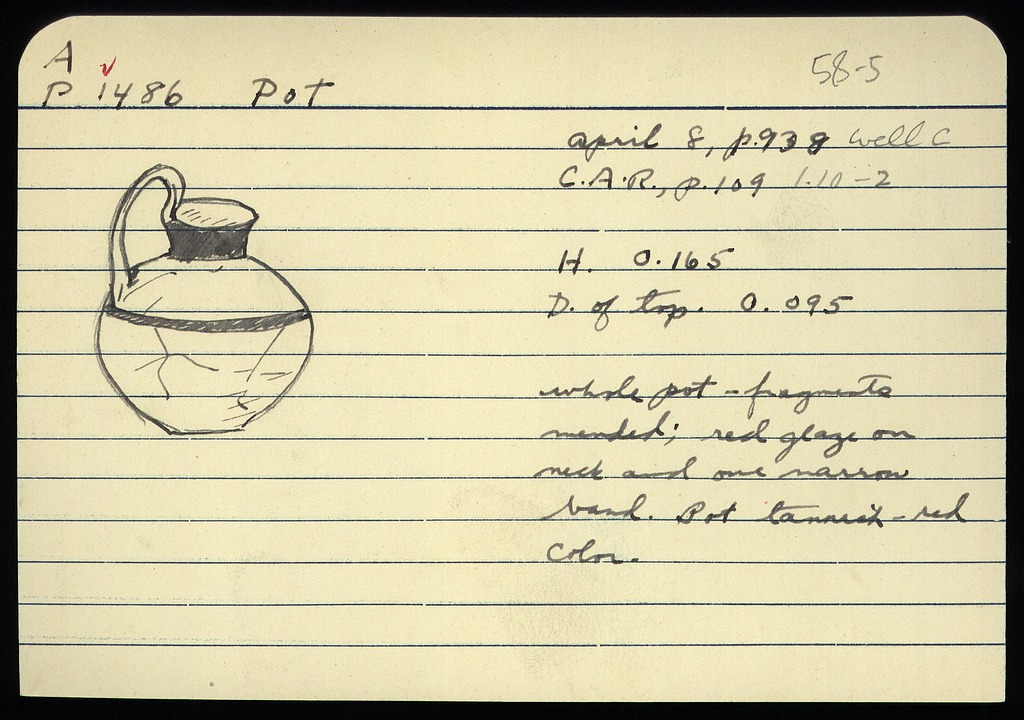 A
P 1486 Pot
58-5
april 8, p.938 well C
C.A.R., p.109 1.10-2
H. 0.165
D. of top. 0.095
whole pot - fragments
mended; red glaze on
neck and one narrow
band. Pot tannish-red
color.